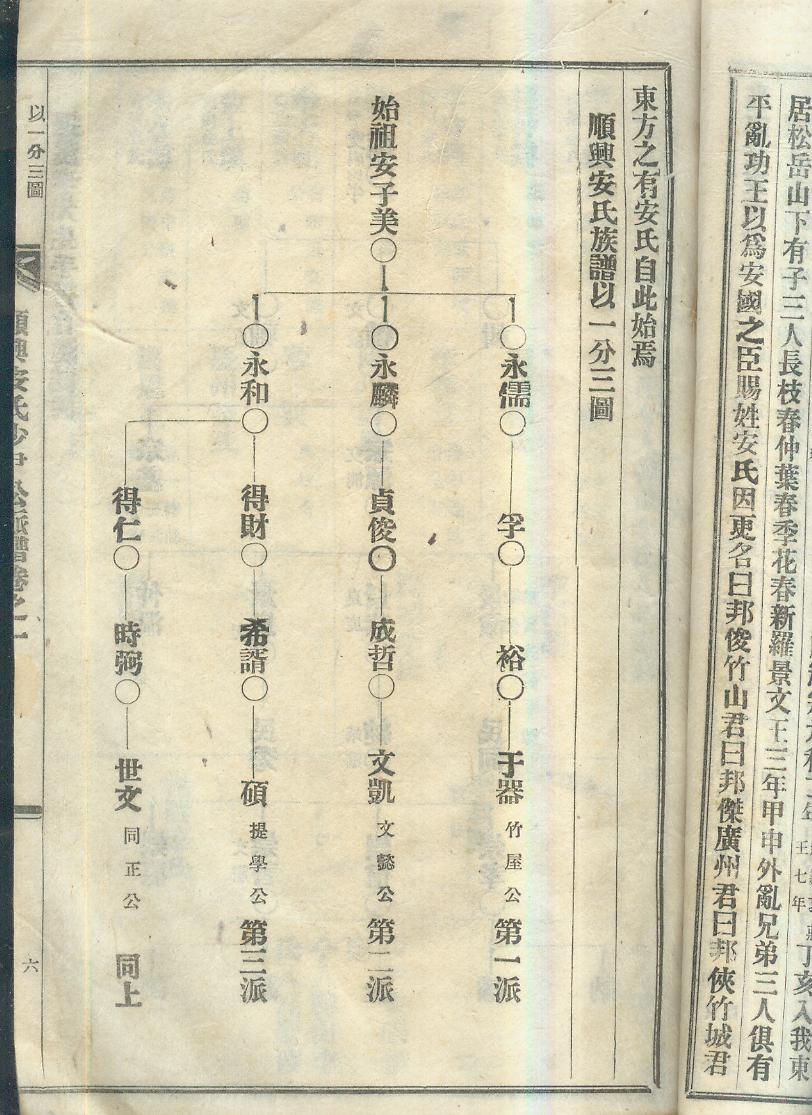 居松岳山下有子三人長枝春仲葉春季花春新羅景文王三年甲申外亂兄弟三人俱有
平亂功王以爲安國之臣賜姓安氏因更名曰邦俊竹山君曰邦傑廣州君曰邦俠竹城君
東方之有安氏自此始焉
順興安氏族譜以一分三圖
始祖安子美
永儒 孚 裕 于器 竹屋公 第一派
永麟 貞俊 成哲 文凱 文懿公 第二派
永和 得財 希諝 碩 提學公 第三派
得仁 時弼 世文 同正公 同上
以一分三圖
順興安氏 公派譜卷之一
六